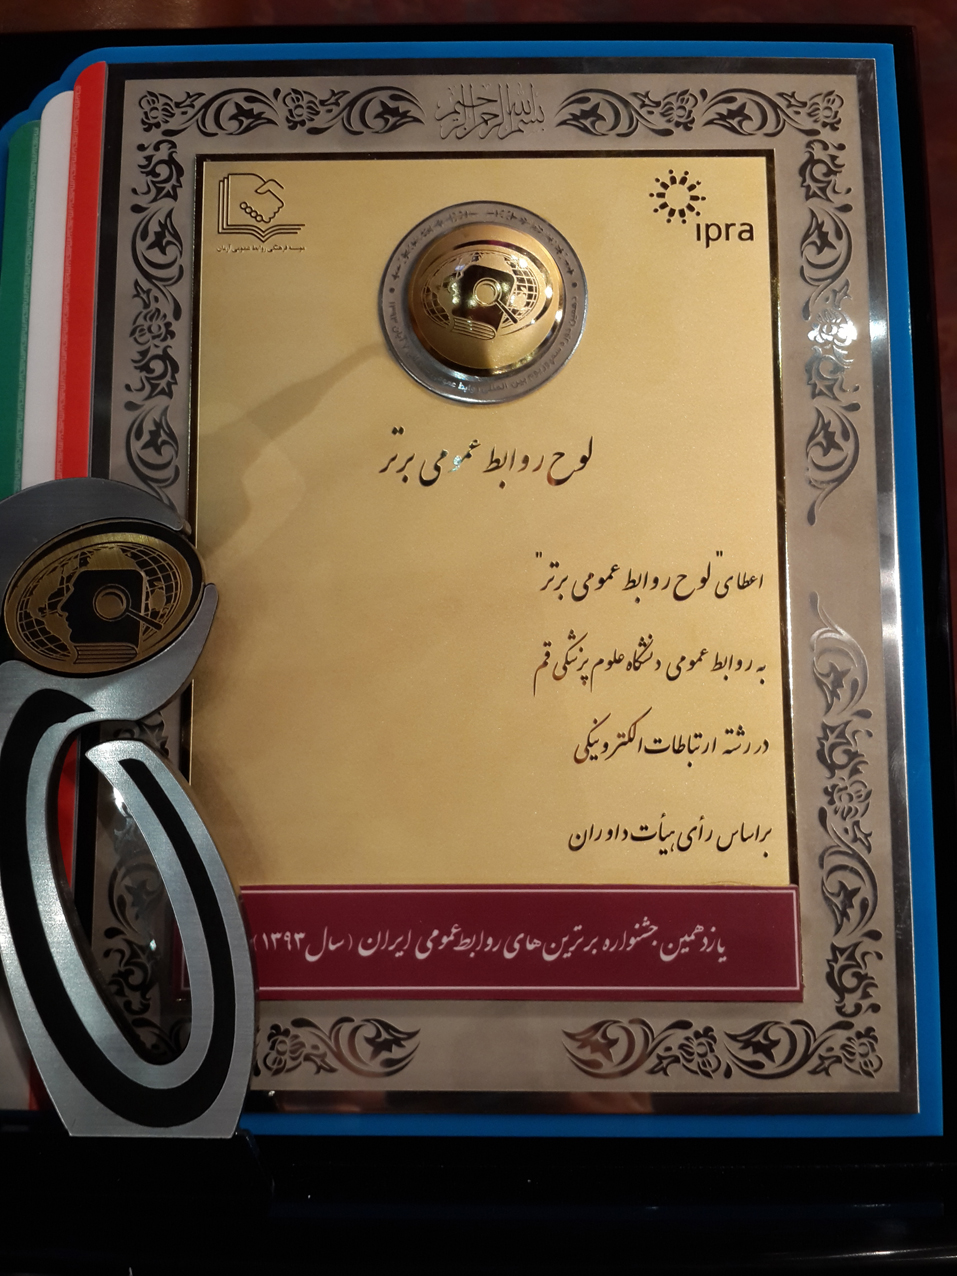 بسم الله الرحمن الرحیم
موسسه فرهنگی روابط عمومی آرمان
ipra
لوح روابط عمومی برتر
اعطای "لوح روابط عمومی برتر"
به روابط عمومی دانشگاه علوم پزشکی قم
در رشته ارتباطات الکترونیکی
براساس رأی هیأت داوران
یازدهمین جشنواره برترین های روابط عمومی ایران (سال ۱۳۹۳)